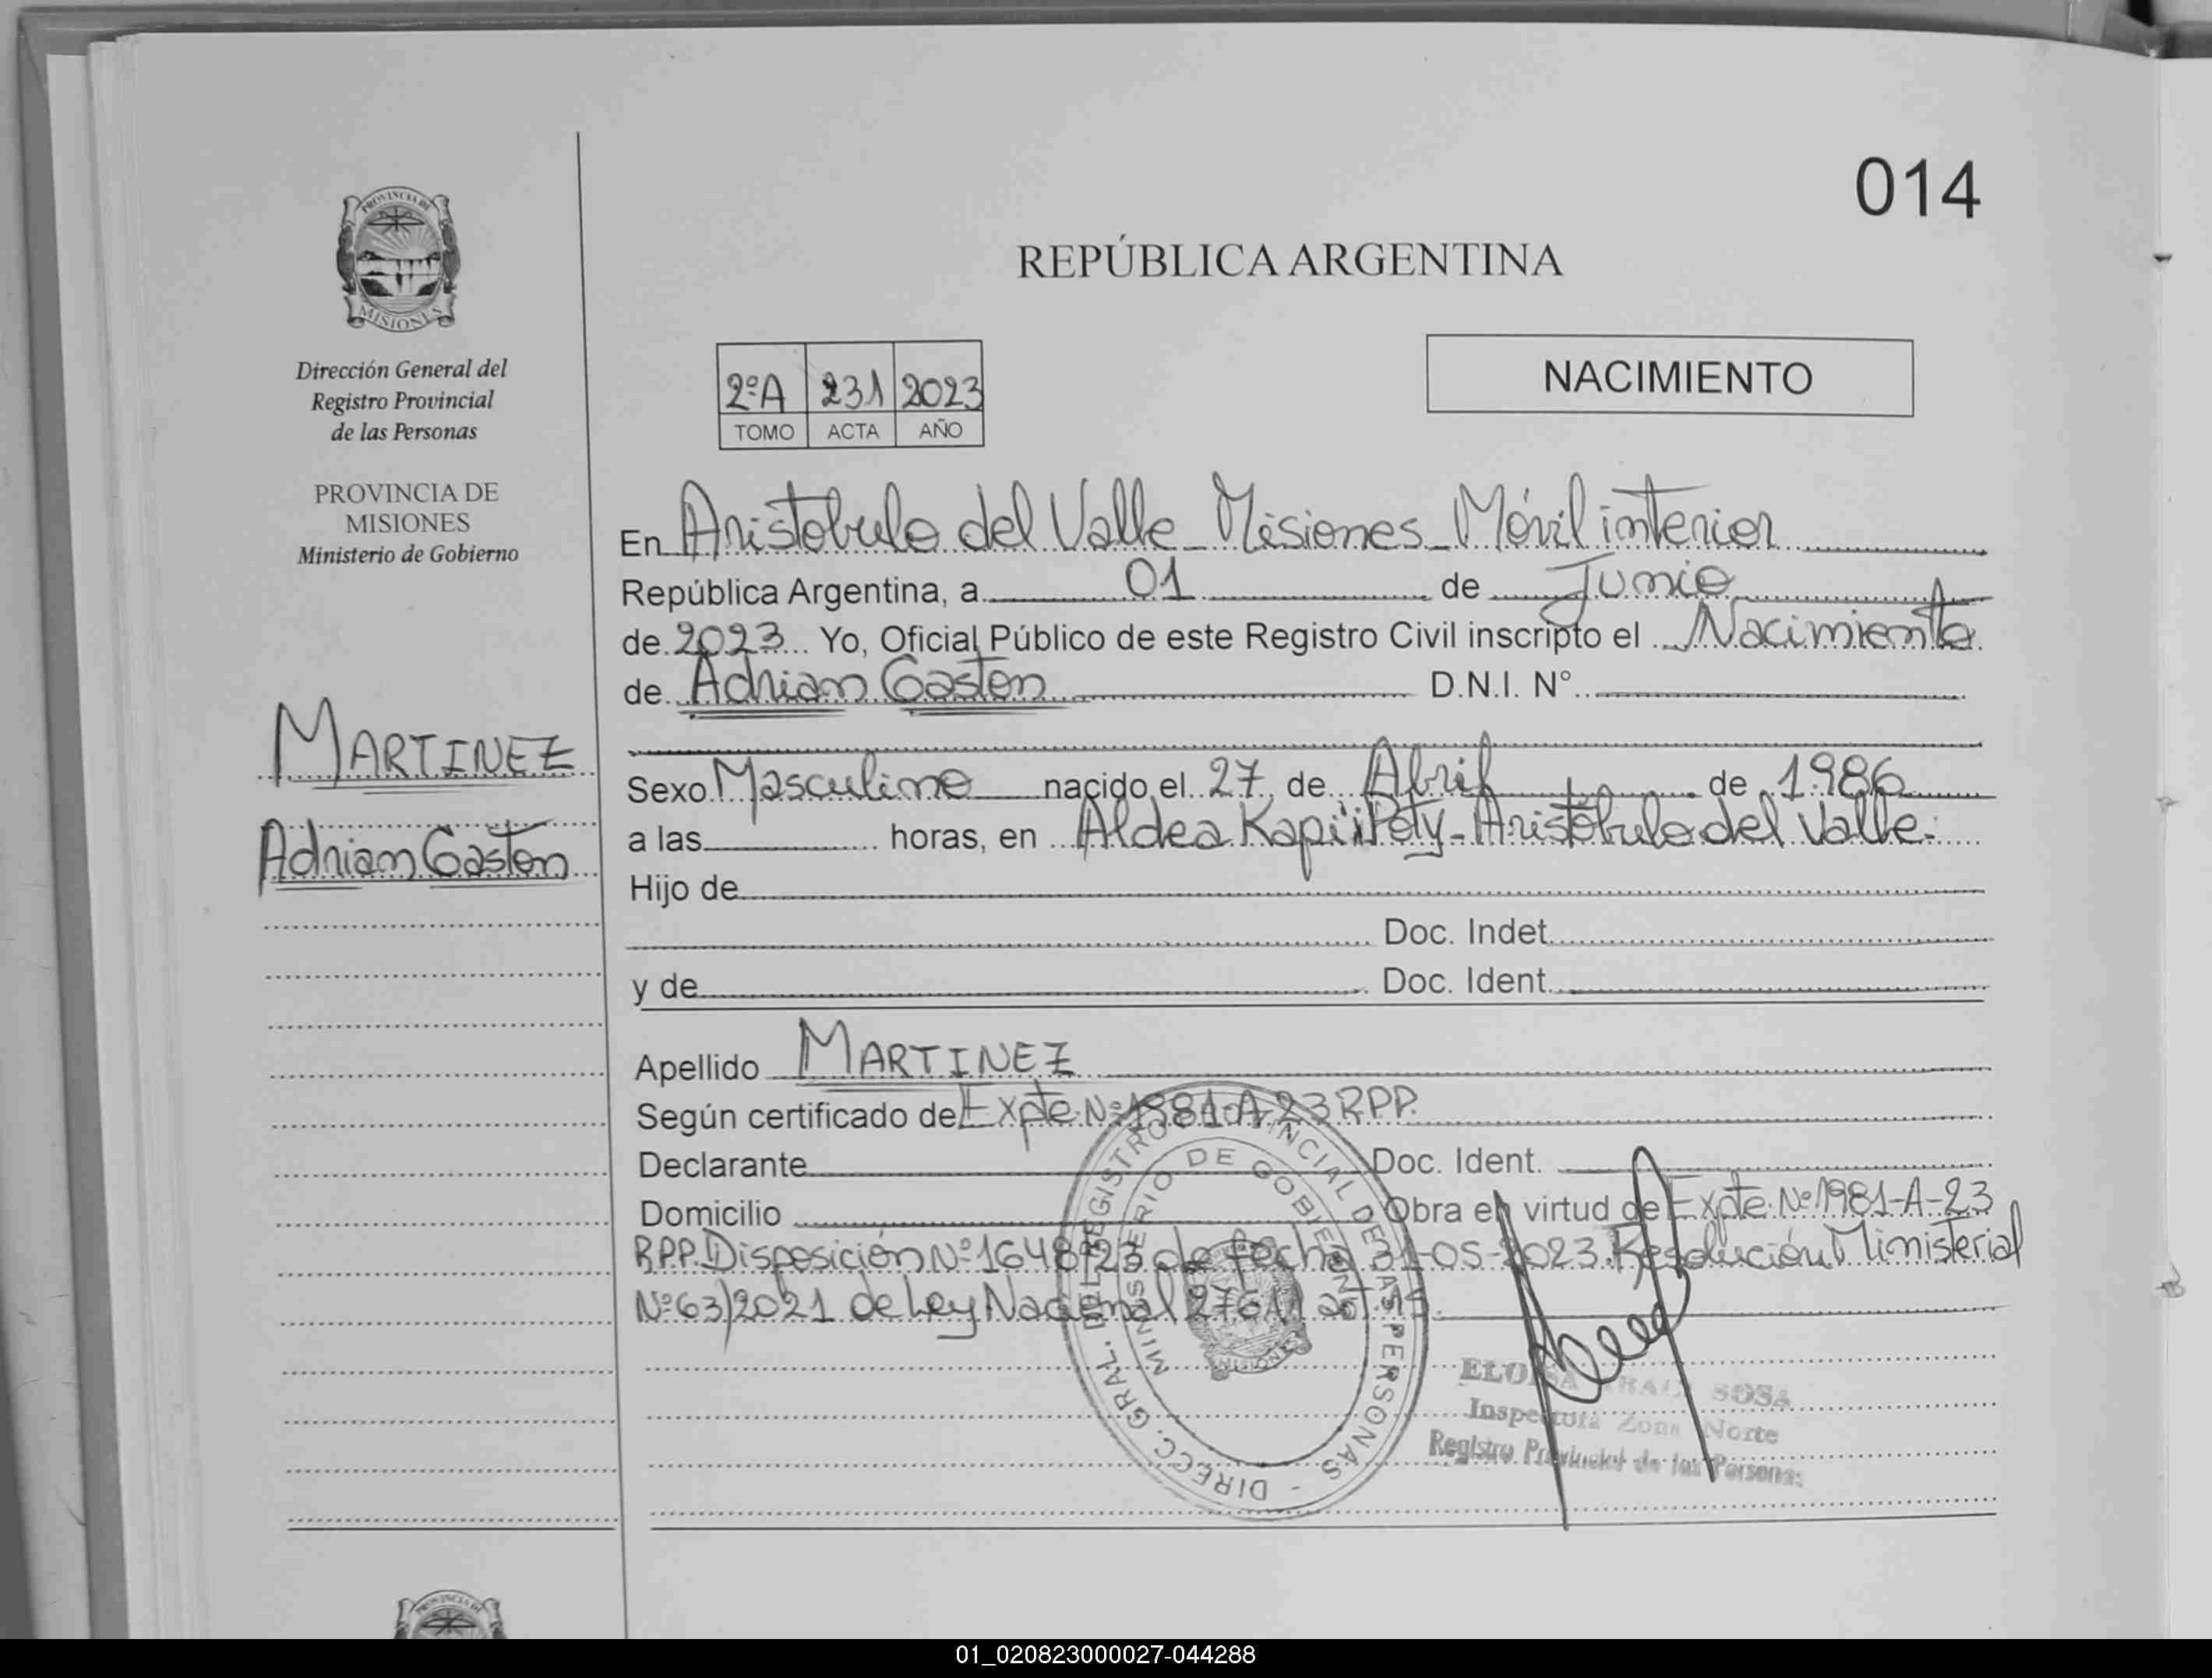 014
PROVINCIA DE
MISIONES
Dirección General del
Registro Provincial
de las Personas
PROVINCIA DE
MISIONES
Ministerio de Gobierno
MARTINEZ
Adrian Gaston
REPÚBLICA ARGENTINA
NACIMIENTO
2ºA 231 2023
TOMO ACTA AÑO
En Aristobulo del Valle - Misiones - Móvil interior
República Argentina, a 01 de Junio
de 2023 Yo, Oficial Público de este Registro Civil inscripto el Nacimiento
de Adrian Gaston D.N.I. N°
Sexo Masculino nacido el 27 de Abril de 1986
a las horas, en Aldea Kapi'i Poty - Aristobulo del Valle-
Hijo de
Doc. Indet.
y de Doc. Ident.
Apellido MARTINEZ
Según certificado de Expte Nº 1981-A-23 RPP.
Declarante Doc. Ident.
Domicilio Obra en virtud de Expte Nº 1981-A-23
RPP. Disposición Nº 1648/23 de fecha 31-05-2023. Resolución Ministerial
Nº 63/2021 de Ley Nacional 27611 art. 15.
DIRECC. GRAL. DEL REGISTRO PROVINCIAL DE LAS PERSONAS -
MINISTERIO DE GOBIERNO
MISIONES
ELOISA SOSA
Inspectora Zona Norte
Registro Provincial de las Personas
PROVINCIA DE
01_020823000027-044288